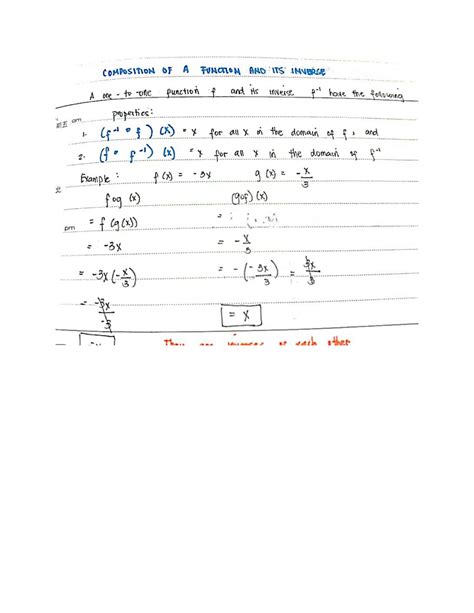 COMPOSITION OF A FUNCTION AND ITS INVERSE
A one - to - one function f and its inverse f⁻¹ have the following
properties:
pm
1. (f⁻¹ ∘ f) (x) = x for all x in the domain of f, and
2. (f ∘ f⁻¹) (x) = x for all x in the domain of f⁻¹
Example: f(x) = -3x g(x) = -x/3
fog (x) (gof)(x)
pm = f (g(x)) =
= -3x = -x/3
= -3x(-x/3) = -(-3x/3) = 3x/3
= -3x/-3 = x
They are inverses of each other